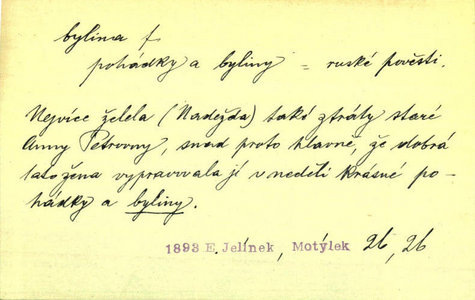 bylina f
pohádky a byliny = ruské pověsti.
Nejvíce želela (Naděžda) také ztráty staré
Anny Petrovny, snad proto hlavně, že dobrá
tato žena vypravovala jí v neděli krásné po-
hádky a byliny.
1893 E. Jelínek, Motýlek 26, 26